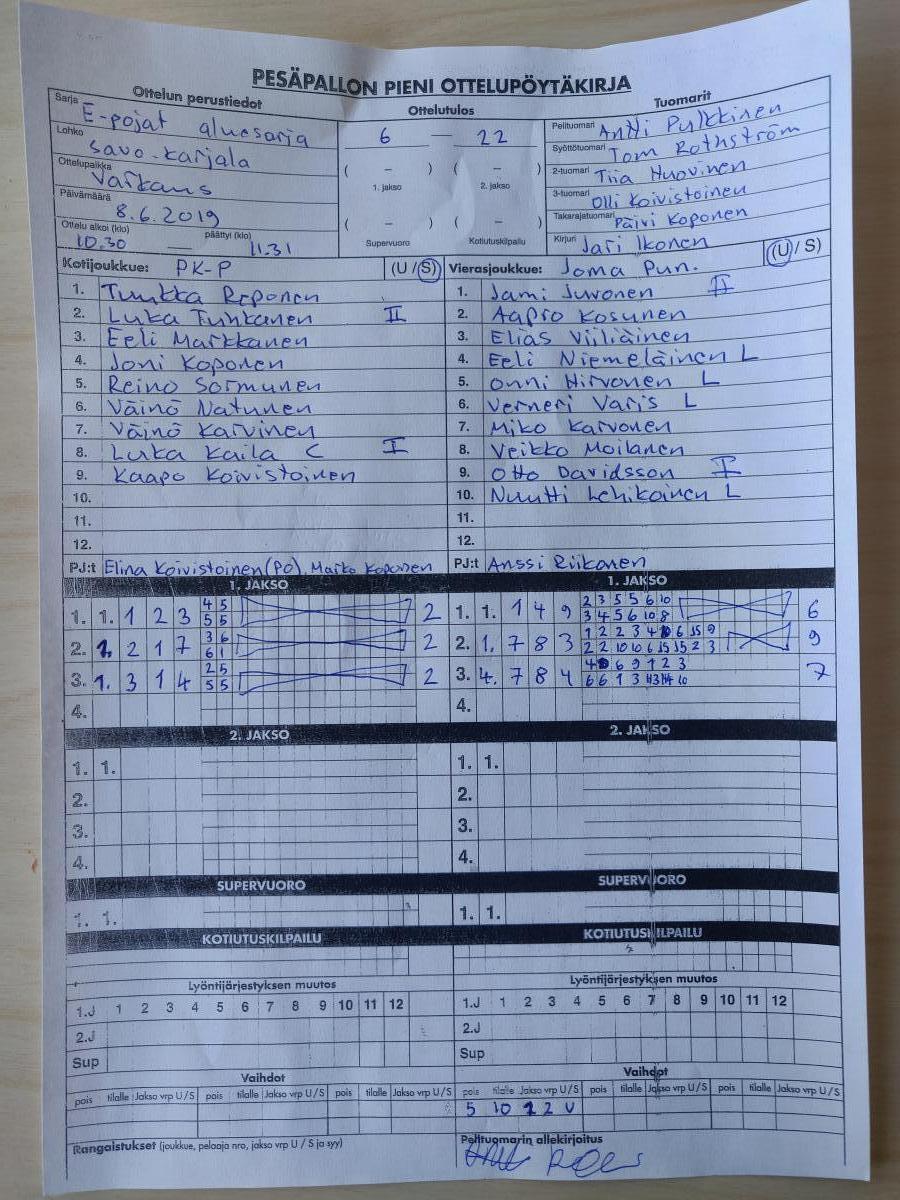 PESÄPALLON PIENI OTTELUPÖYTÄKIRJA
Ottelun perustiedot
Sarja E-pojat aluesarja
Lohko Savo-Karjala
Ottelupaikka Varkaus
Päivämäärä 8.6.2019
Ottelu alkoi (klo) 10.30 — päättyi (klo) 11.31
Ottelutulos
6 — 22
( – ) ( – )
1. jakso 2. jakso
( – ) ( – )
Supervuoro Kotiutuskilpailu
Tuomarit
Pelituomari Antti Pulkkinen
Syöttötuomari Tom Rothström
2-tuomari Tiia Huovinen
3-tuomari Olli Koivistoinen
Takarajatuomari Päivi Koponen
Kirjuri Jari Ikonen
Kotijoukkue: PK-P (U / S)
1. Tuukka Reponen
2. Luka Tuhkanen II
3. Eeli Markkanen
4. Joni Koponen
5. Reino Sormunen
6. Väinö Natunen
7. Väinö Karvinen
8. Luka Kaila C I
9. Kaapo Koivistoinen
10.
11.
12.
PJ:t Elina Koivistoinen (PO), Marko Koponen
Vierasjoukkue: Joma Pun. (U / S)
1. Jami Juvonen II
2. Aapro Kosunen
3. Elias Viiliäinen
4. Eeli Niemeläinen L
5. Onni Hirvonen L
6. Verneri Varis L
7. Miko Karvonen
8. Veikko Moilanen
9. Otto Davidsson I
10. Nuutti Lehikoinen L
11.
12.
PJ:t Anssi Riikonen
1. JAKSO
1. 1. 1 2 3 4 5 2
5 5
2. 1. 2 1 7 3 6 2
6 1
3. 1. 3 1 4 2 5 2
5 5
4.
1. JAKSO
1. 1. 1 4 9 2 3 5 5 6 10 6
3 4 5 6 10 8
2. 1. 7 8 3 1 2 2 3 4 6 15 9 9
2 2 10 10 6 15 15 2 3
3. 4. 7 8 4 4 6 9 1 2 3 7
6 6 1 3 10
4.
2. JAKSO
1. 1.
2.
3.
4.
2. JAKSO
1. 1.
2.
3.
4.
SUPERVUORO
1. 1.
SUPERVUORO
1. 1.
KOTIUTUSKILPAILU
KOTIUTUSKILPAILU
Lyöntijärjestyksen muutos
1.J 1 2 3 4 5 6 7 8 9 10 11 12
2.J
Sup
Lyöntijärjestyksen muutos
1.J 1 2 3 4 5 6 7 8 9 10 11 12
2.J
Sup
Vaihdot
pois tilalle Jakso vrp U/S pois tilalle Jakso vrp U/S pois tilalle Jakso vrp U/S
Vaihdot
pois tilalle Jakso vrp U/S pois tilalle Jakso vrp U/S pois tilalle Jakso vrp U/S
5 10 1 2 U
Rangaistukset (joukkue, pelaaja nro, jakso vrp U / S ja syy)
Pelituomarin allekirjoitus